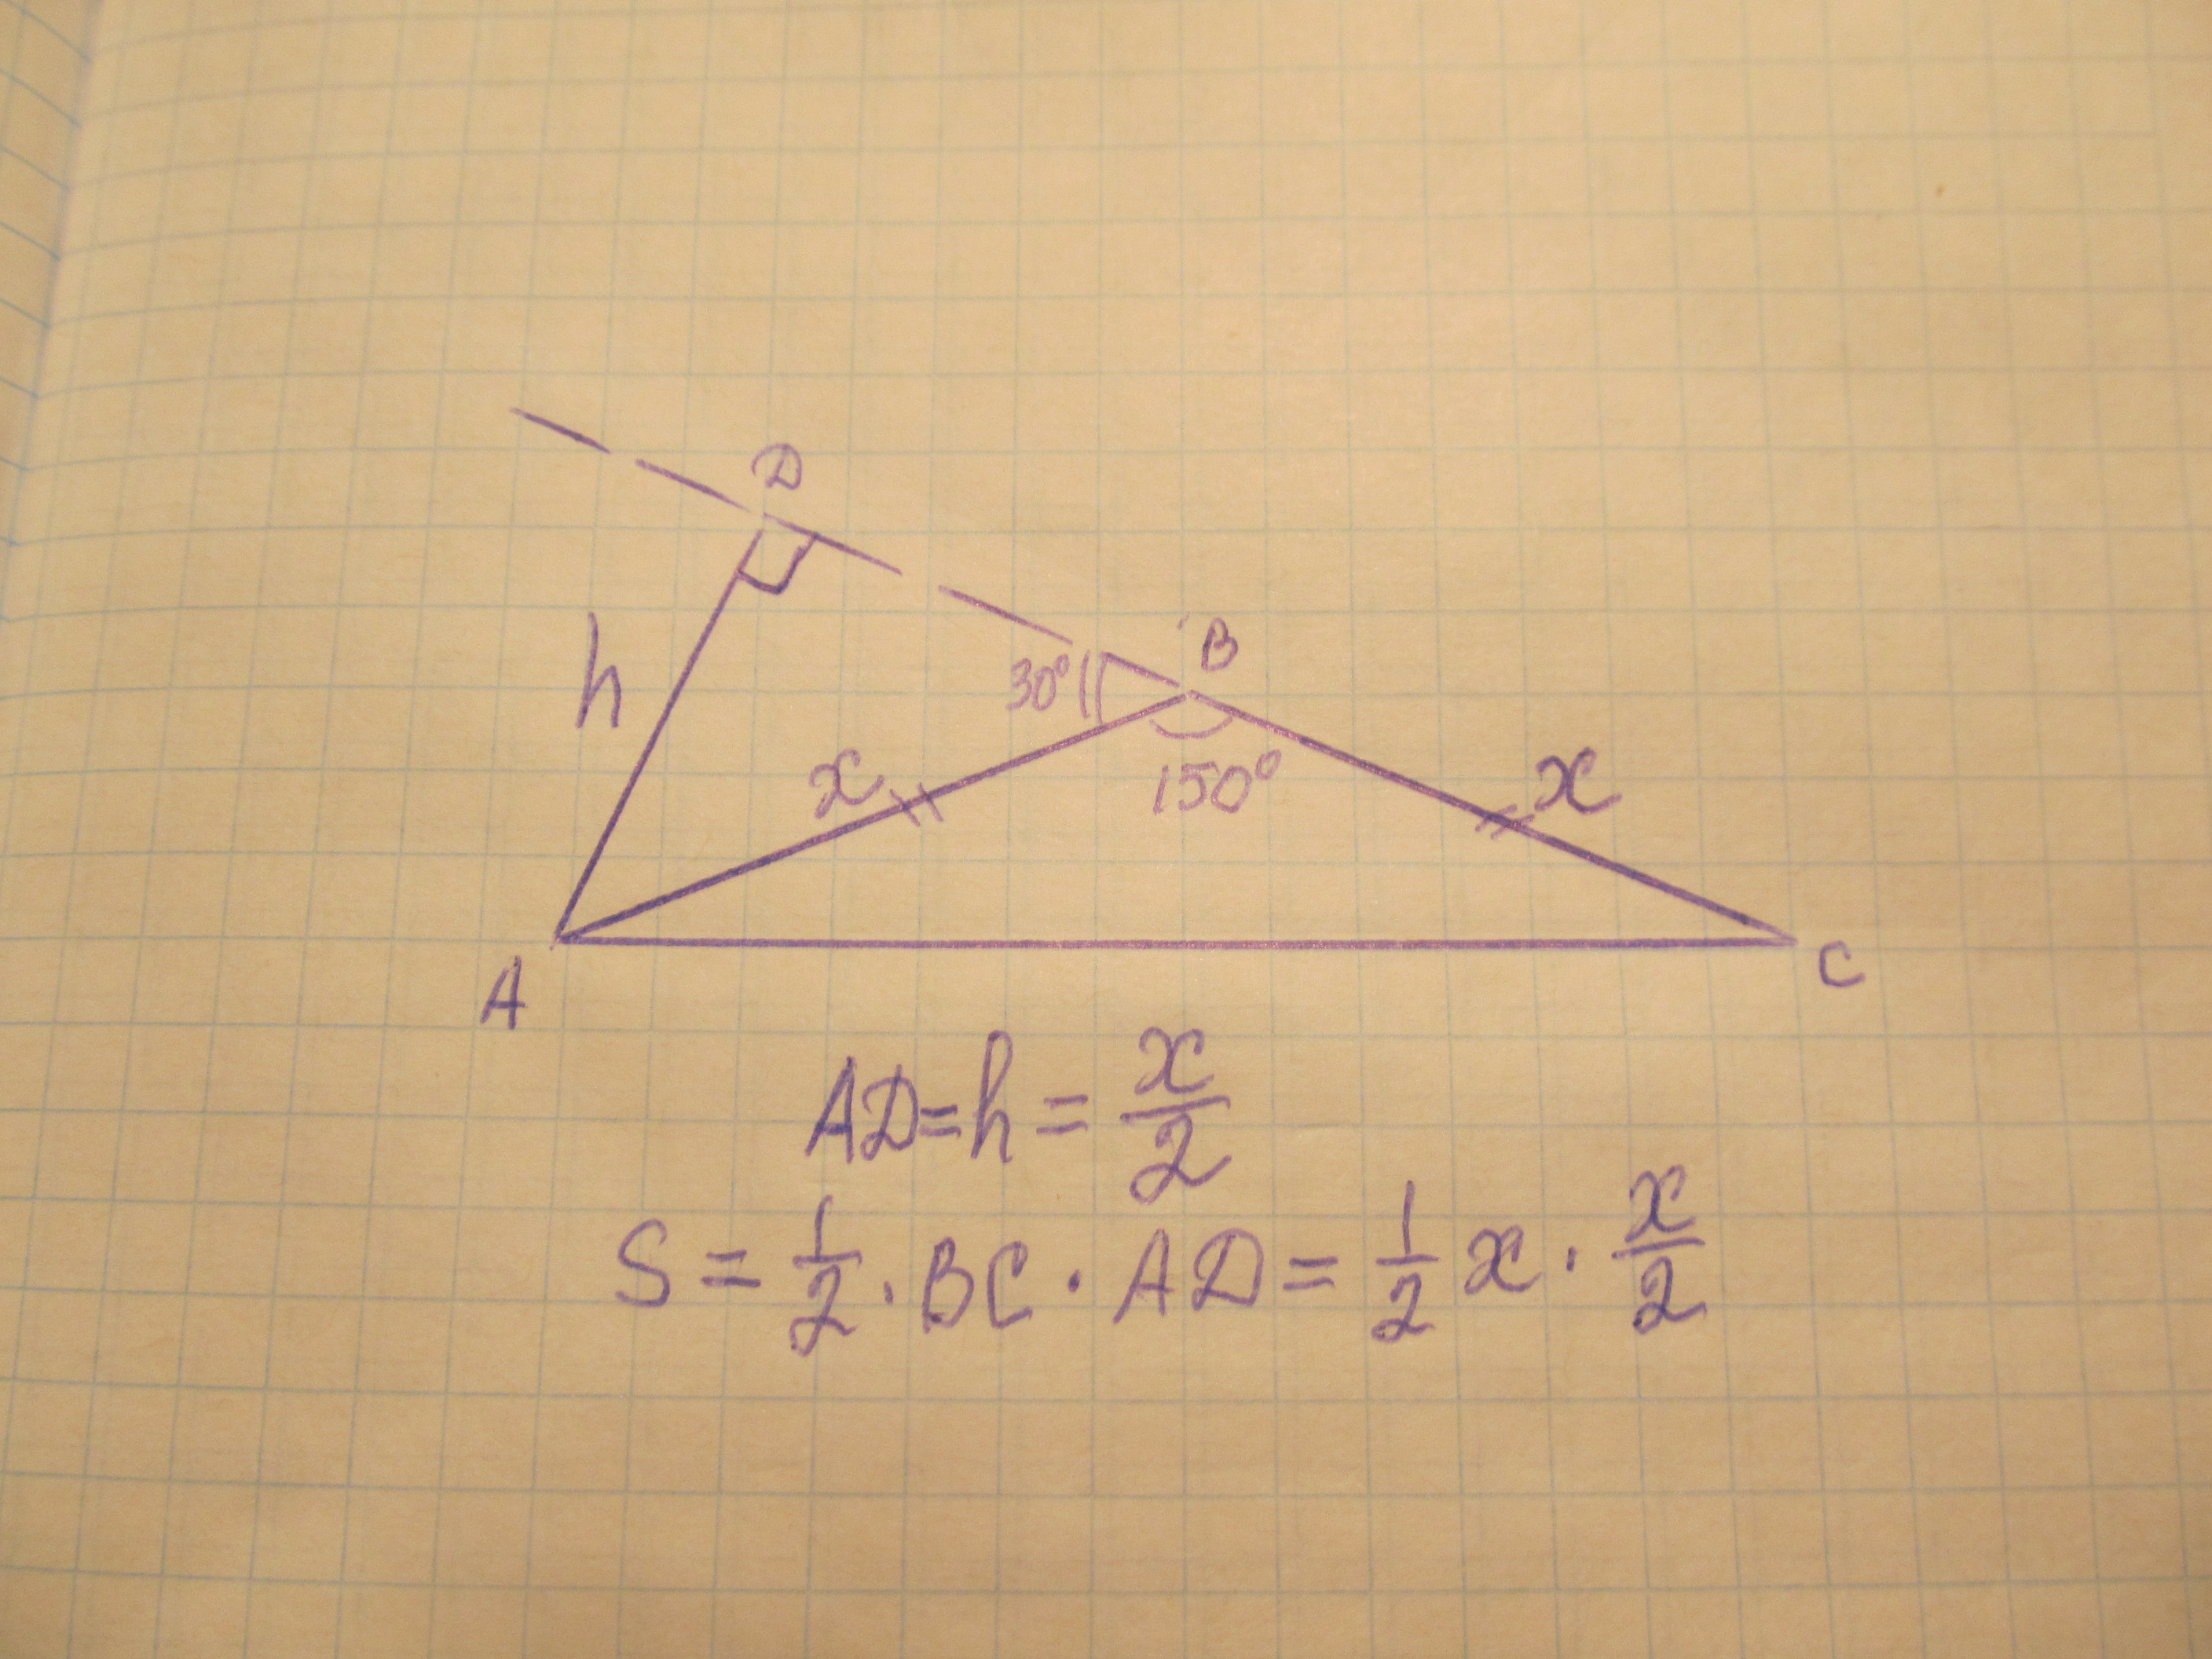 D
B
30°
h
x
x
150°
A
C
AD=h=x/2
S=1/2·BC·AD=1/2x·x/2